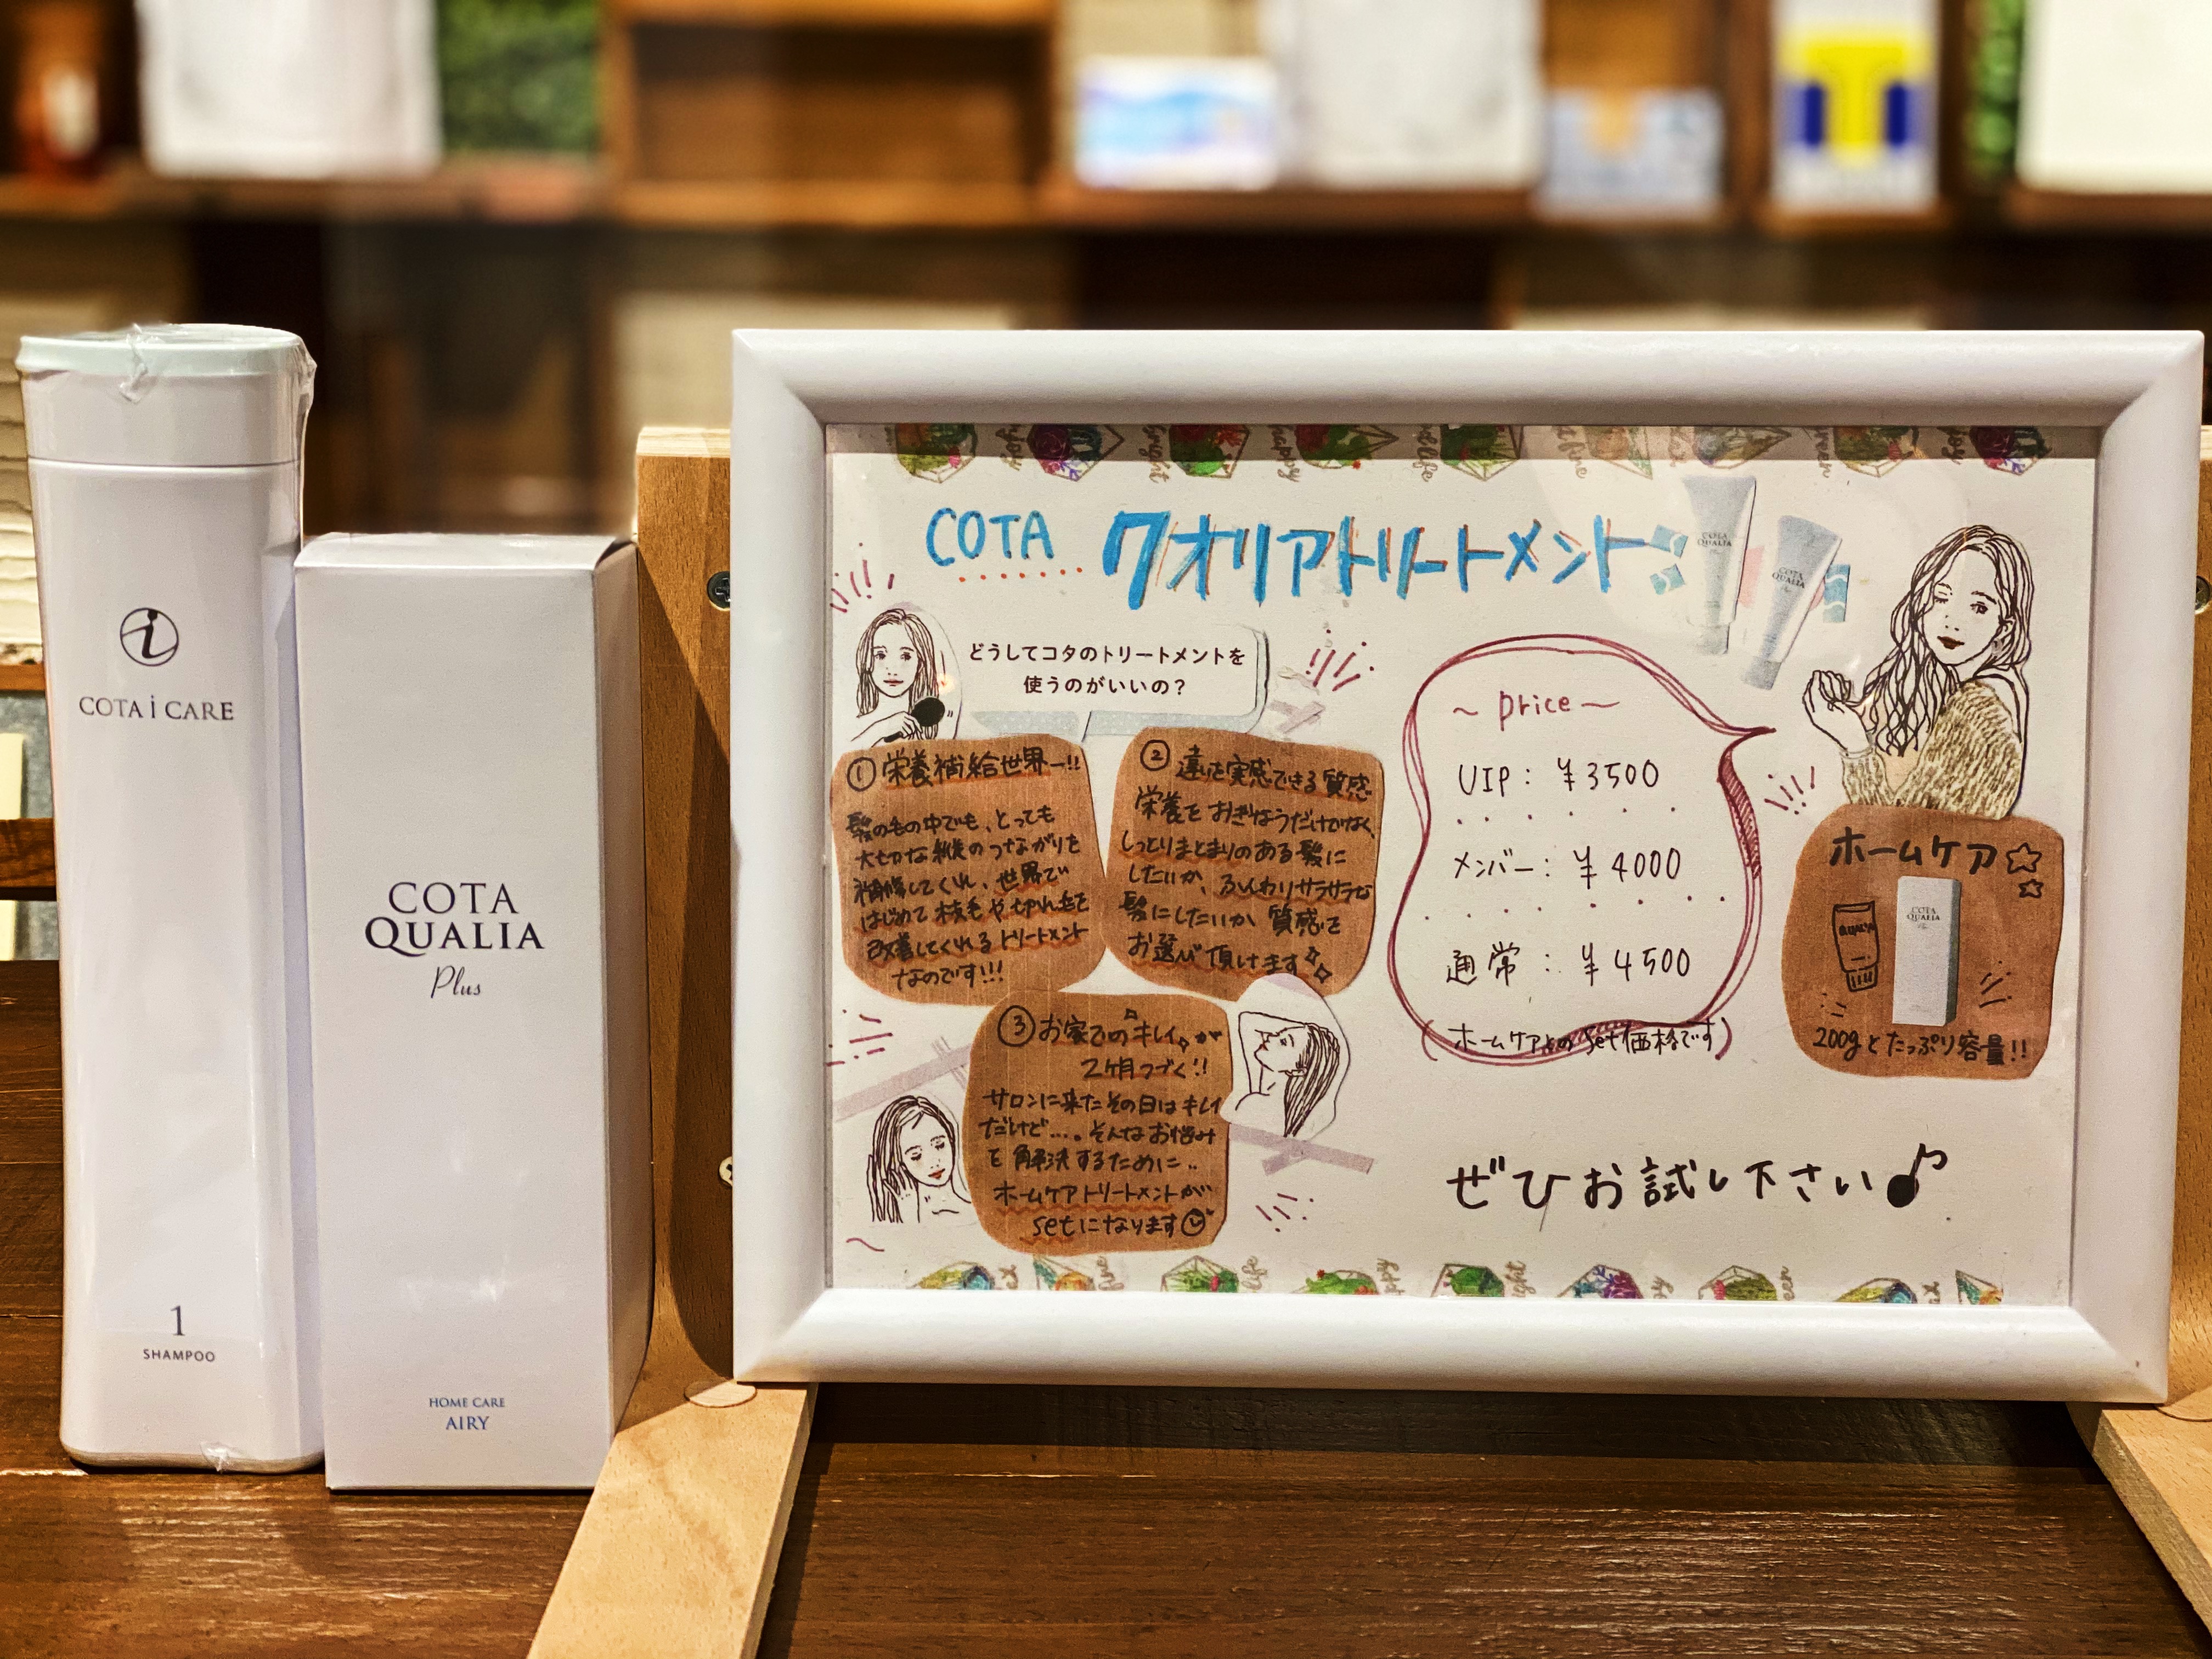 COTA i CARE
1
SHAMPOO
COTA
QUALIA
Plus
HOME CARE
AIRY
COTA クオリアトリートメント
COTA
QUALIA
COTA
QUALIA
どうしてコタのトリートメントを
使うのがいいの？
①栄養補給世界一!!
髪の毛の中でも、とっても
大切な縦のつながりを
補修してくれ、世界で
はじめて枝毛や切れ毛を
改善してくれるトリートメント
なのです!!!
②違いを実感できる質感
栄養をおぎなうだけでなく
しっとりまとまりのある髪に
したいか、ふんわりサラサラな
髪にしたいか質感を
お選び頂けます
③お家でのキレイが
2ヶ月つづく!!
サロンに来たその日はキレイ
だけど…。そんなお悩み
を解決するために..
ホームケアトリートメントが
setになります
～price～
VIP: ¥3500
メンバー: ¥4000
通常: ¥4500
(ホームケアとのset価格です)
ホームケア☆
COTA
QUALIA
200gとたっぷり容量!!
ぜひお試し下さい♪